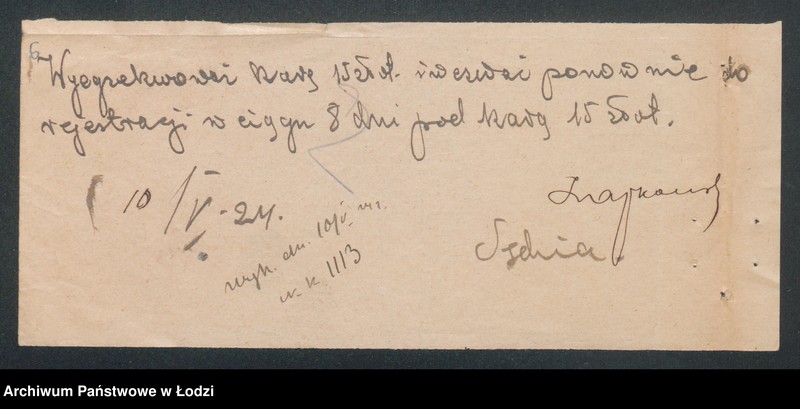 Wyegzekwować karę 15 złot. i wezwać ponownie do
rejestracji w ciągu 8 dni pod karą 15 złot.
10/V-24.
Sędzia.
wyk. dn. 10/V
w. k 1113
Archiwum Państwowe w Łodzi